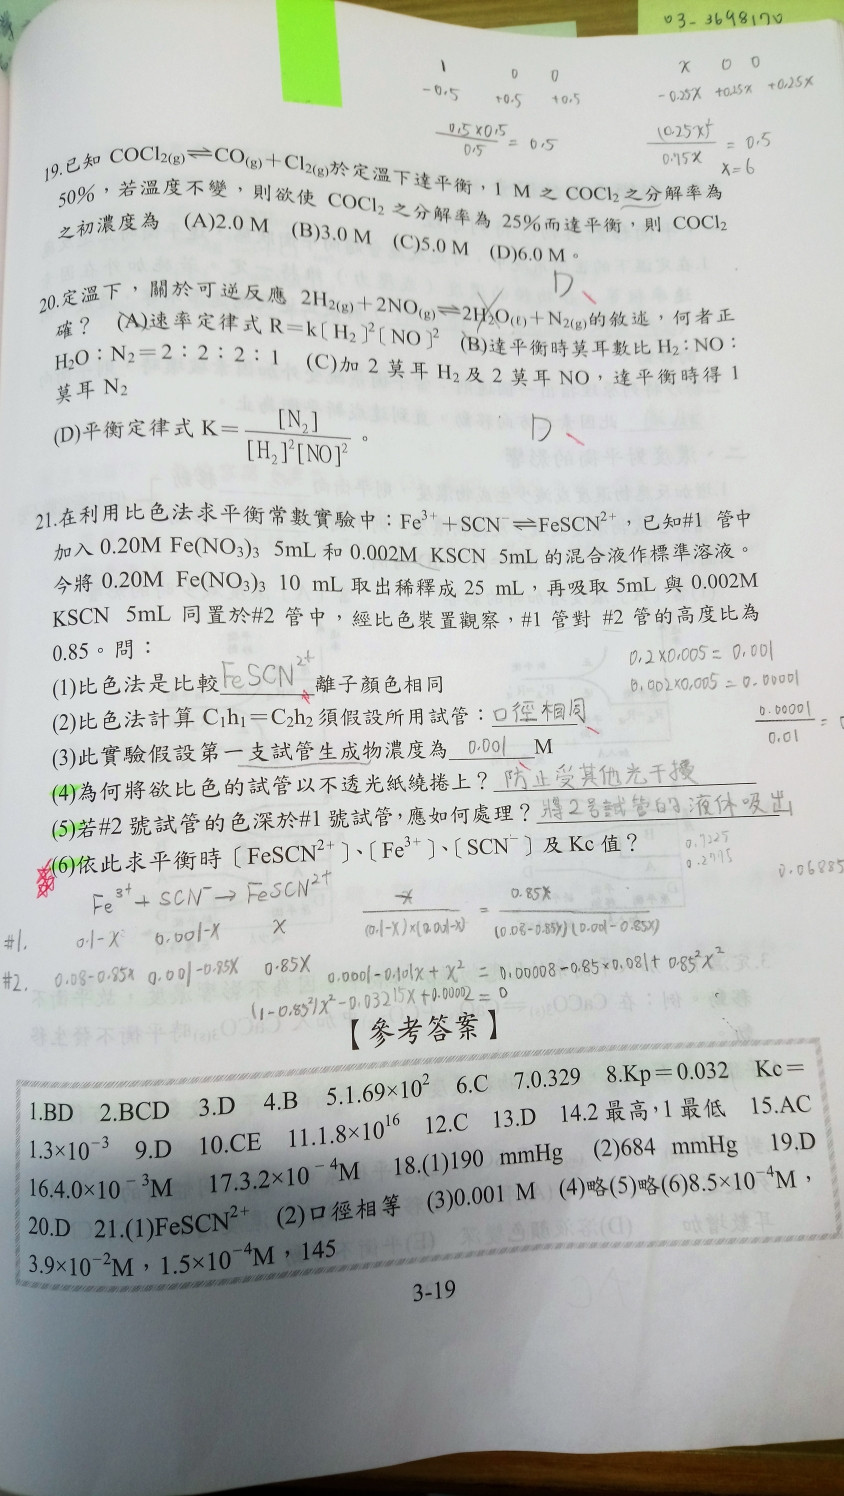 03-3698170
1 0 0 x 0 0
-0.5 +0.5 +0.5 -0.25x +0.25x +0.25x
0.5×0.5/0.5 = 0.5 (0.25x)²/0.75x = 0.5
x=6
19.已知 COCl2(g)⇌CO(g)+Cl2(g)於定溫下達平衡,1 M 之 COCl2 之分解率為
50%,若溫度不變,則欲使 COCl2 之分解率為 25%而達平衡,則 COCl2
之初濃度為 (A)2.0 M (B)3.0 M (C)5.0 M (D)6.0 M。
D
20.定溫下,關於可逆反應 2H2(g)+2NO(g)⇌2H2O(ℓ)+N2(g)的敘述,何者正
確? (A)速率定律式 R=k〔H2〕²〔NO〕² (B)達平衡時莫耳數比 H2:NO:
H2O:N2=2:2:2:1 (C)加 2 莫耳 H2 及 2 莫耳 NO,達平衡時得 1
莫耳 N2
(D)平衡定律式 K=[N2]/[H2]²[NO]²。
D
21.在利用比色法求平衡常數實驗中:Fe³⁺+SCN⁻⇌FeSCN²⁺,已知#1 管中
加入 0.20M Fe(NO3)3 5mL 和 0.002M KSCN 5mL 的混合液作標準溶液。
今將 0.20M Fe(NO3)3 10 mL 取出稀釋成 25 mL,再吸取 5mL 與 0.002M
KSCN 5mL 同置於#2 管中,經比色裝置觀察,#1 管對 #2 管的高度比為
0.85。問:
0.2×0.005=0.001
0.002×0.005=0.00001
0.00001/0.01 =
(1)比色法是比較FeSCN²⁺離子顏色相同
(2)比色法計算 C1h1=C2h2 須假設所用試管:口徑相同
(3)此實驗假設第一支試管生成物濃度為 0.001 M
(4)為何將欲比色的試管以不透光紙繞捲上?防止受其他光干擾
(5)若#2 號試管的色深於#1 號試管,應如何處理?將2号試管的液休吸出
(6)依此求平衡時〔FeSCN²⁺〕、〔Fe³⁺〕、〔SCN⁻〕及 Kc 值?
0.7225
0.2775
0.06885
Fe³⁺+SCN⁻→FeSCN²⁺
x/(0.1-x)×(0.001-x) = 0.85x/(0.08-0.85x)(0.001-0.85x)
#1. 0.1-x 0.001-x x
#2. 0.08-0.85x 0.001-0.85x 0.85x 0.0001-0.101x+x² = 0.00008-0.85×0.081+0.85²x²
(1-0.85²)x²-0.03215x+0.00002=0
【參考答案】
1.BD 2.BCD 3.D 4.B 5.1.69×10² 6.C 7.0.329 8.Kp=0.032 Kc=
1.3×10⁻³ 9.D 10.CE 11.1.8×10¹⁶ 12.C 13.D 14.2 最高,1 最低 15.AC
16.4.0×10⁻³M 17.3.2×10⁻⁴M 18.(1)190 mmHg (2)684 mmHg 19.D
20.D 21.(1)FeSCN²⁺ (2)口徑相等 (3)0.001 M (4)略(5)略(6)8.5×10⁻⁴M,
3.9×10⁻²M,1.5×10⁻⁴M,145
3-19